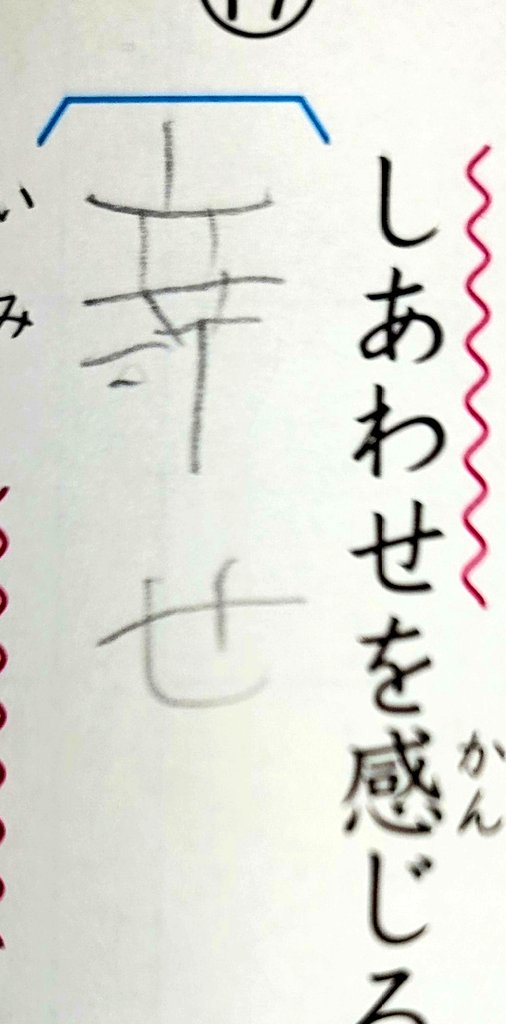 ⑰
しあわせを感じる
かん
幸せ
い
み